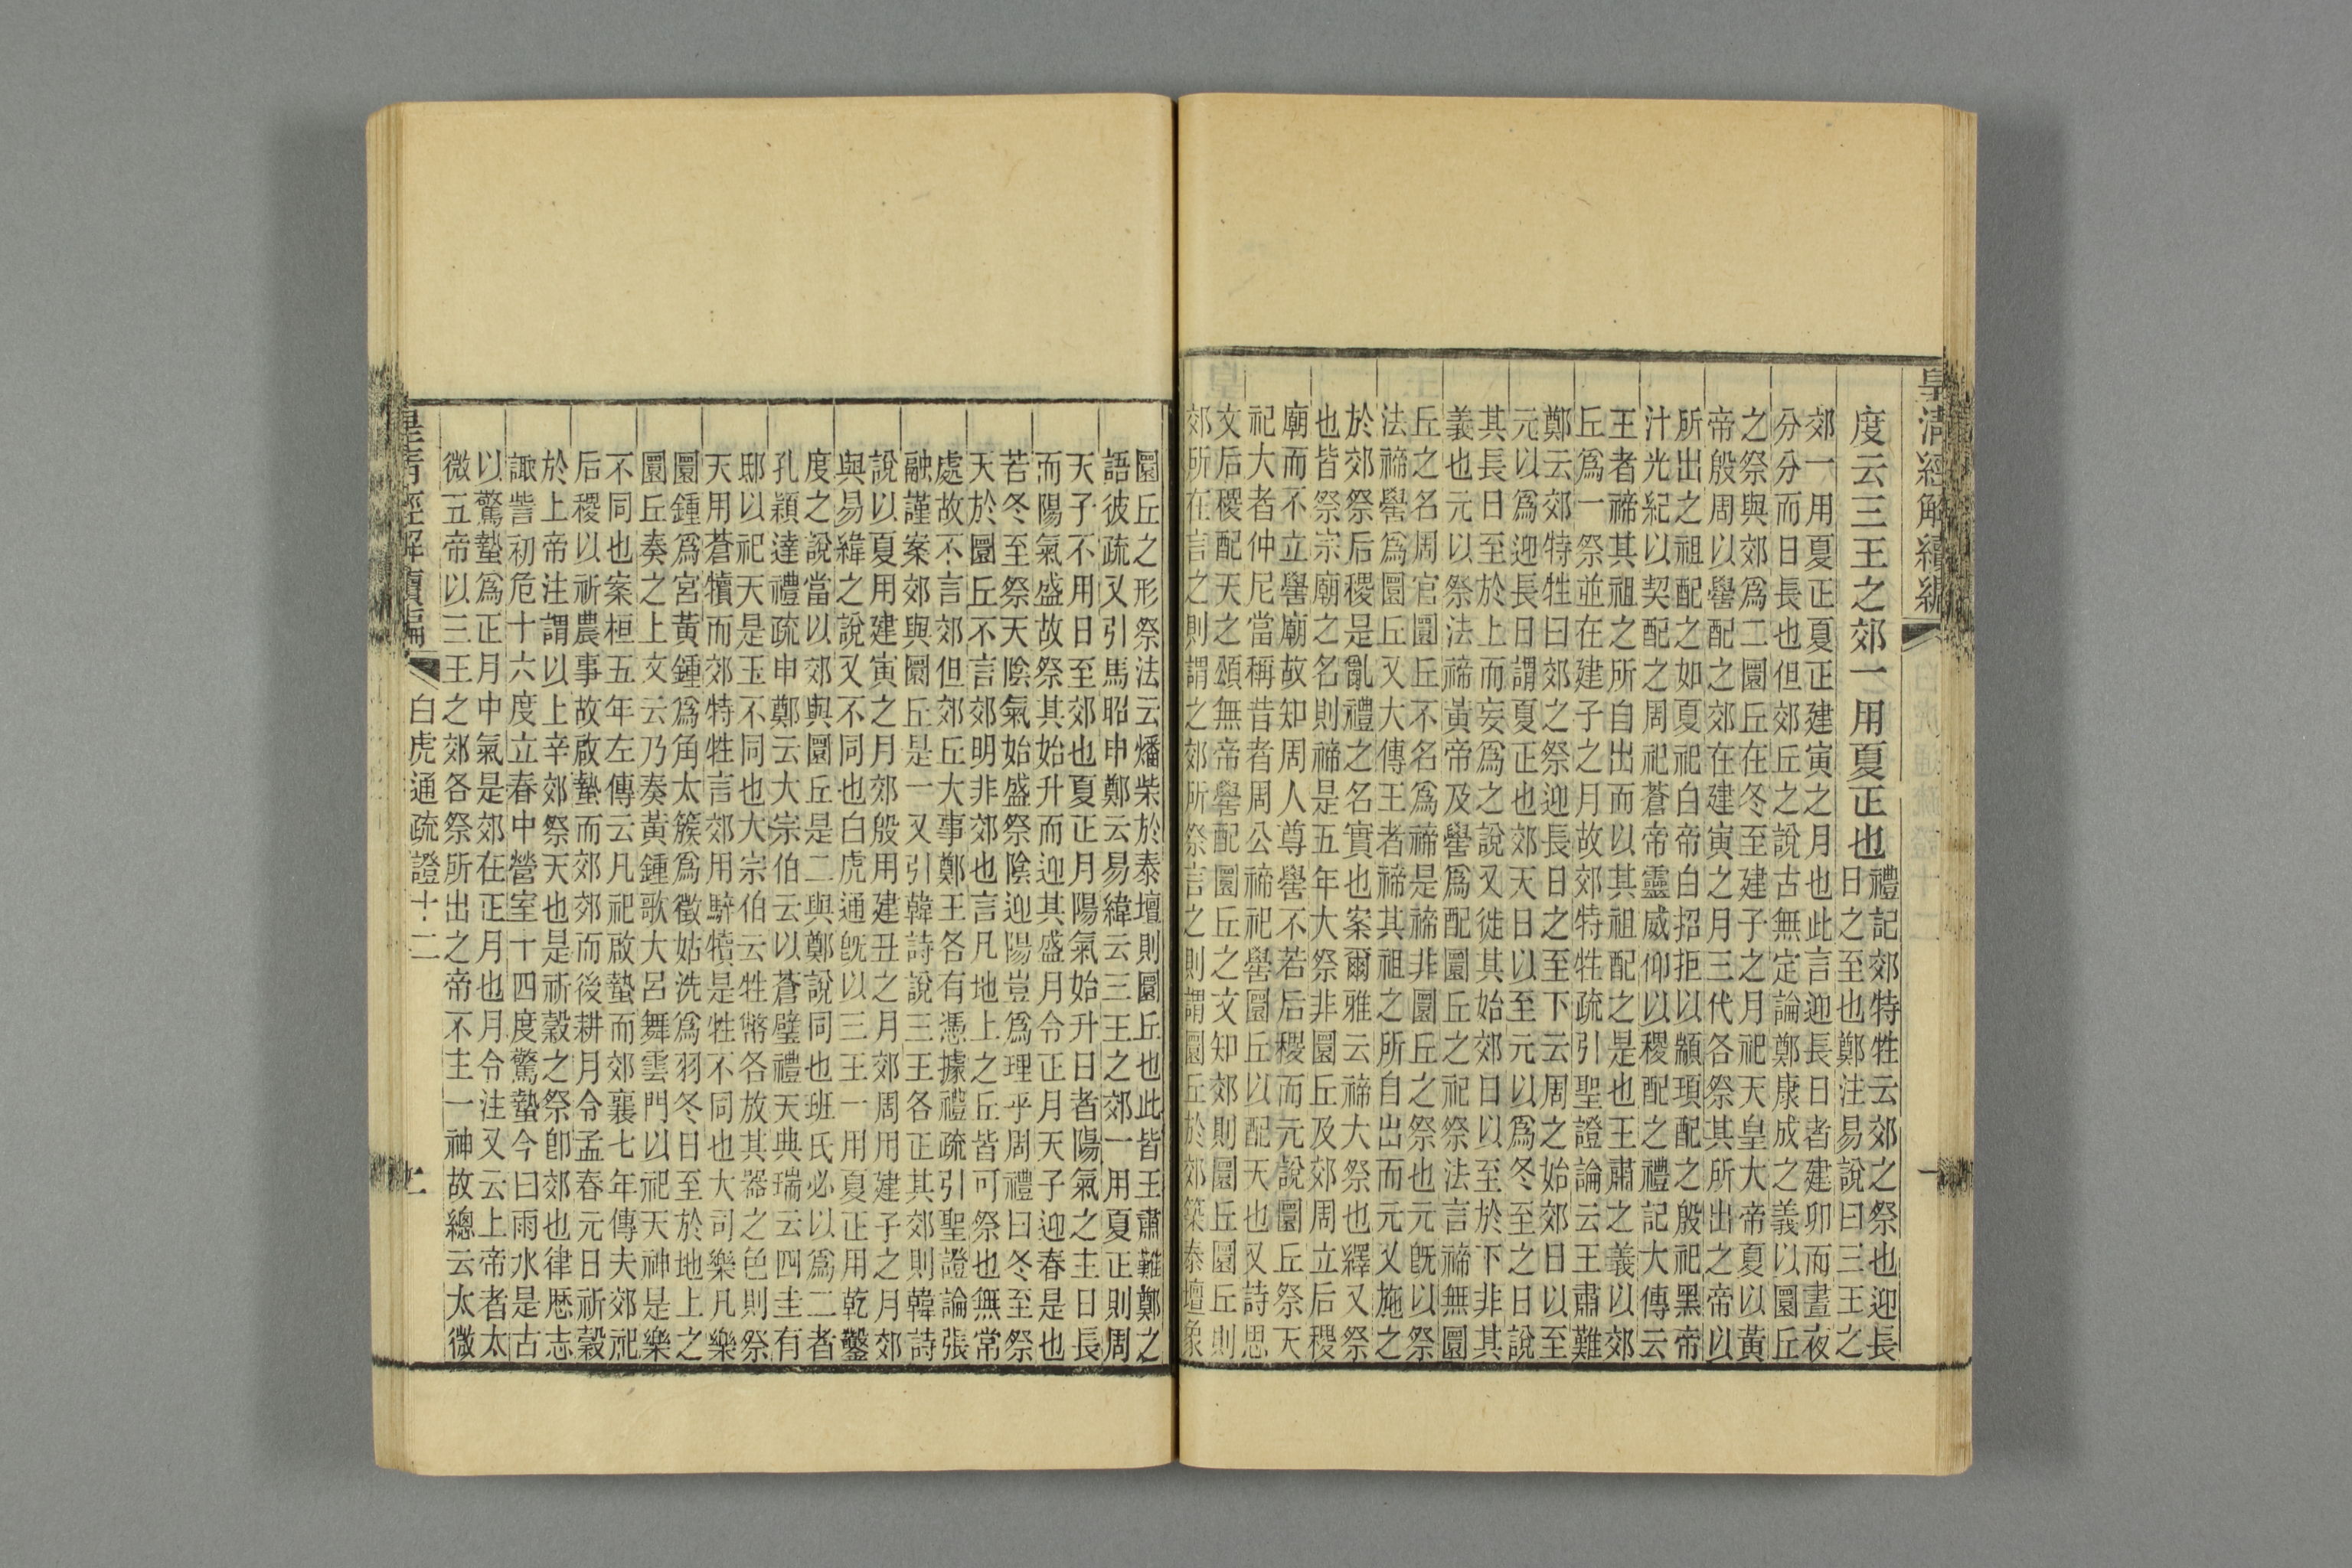 皇清經解續編
一
度云三王之郊一用夏正也禮記郊特牲云郊之祭也迎長
日之至也鄭注易說曰三王之
郊一用夏正夏正建寅之月也此言迎長日者建卯而晝夜
分分而日長也但郊丘之說古無定論鄭康成之義以圜丘
之祭與郊爲二圜丘在冬至建子之月祀天皇大帝夏以黃
帝殷周以嚳配之郊在建寅之月三代各祭其所出之帝以
所出之祖配之如夏祀白帝白招拒以顓頊配之殷祀黑帝
汁光紀以契配之周祀蒼帝靈威仰以稷配之禮記大傳云
王者禘其祖之所自出而以其祖配之是也王肅之義以郊
丘爲一祭並在建子之月故郊特牲疏引聖證論云王肅難
鄭云郊特牲曰郊之祭迎長日之至下云周之始郊日以至
元以爲迎長日謂夏正也郊天日以至元以爲冬至之日說
其長日至於上而妄爲之說又徙其始郊日以至於下非其
義也元以祭法禘黃帝及嚳爲配圜丘之祀祭法言禘無圜
丘之名周官圜丘不名爲禘是禘非圜丘之祭也元旣以祭
法禘嚳爲圜丘又大傳王者禘其祖之所自出而元又施之
於郊祭后稷是亂禮之名實也案爾雅云禘大祭也繹又祭
也皆祭宗廟之名則禘是五年大祭非圜丘及郊周立后稷
廟而不立嚳廟故知周人尊嚳不若后稷而元說圜丘祭天
祀大者仲尼當稱昔者周公禘祀嚳圜丘以配天也又詩思
文后稷配天之頌無帝嚳配圜丘之文知郊則圜丘圜丘則
郊所在言之則謂之郊所祭言之則謂圜丘於郊築泰壇象
圜丘之形祭法云燔柴於泰壇則圜丘也此皆王肅難鄭之
語彼疏又引馬昭申鄭云易緯云三王之郊一用夏正則周
天子不用日至郊也夏正月陽氣始升日者陽氣之主日長
而陽氣盛故祭其始升而迎其盛月令正月天子迎春是也
若冬至祭天陰氣始盛祭陰迎陽豈爲理乎周禮曰冬至祭
天於圜丘不言郊明非郊也言凡地上之丘皆可祭也無常
處故不言郊但郊丘大事鄭王各有憑據禮疏引聖證論張
融謹案郊與圜丘是一又引韓詩說三王各正其郊則韓詩
說以夏用建寅之月郊殷用建丑之月郊周用建子之月郊
與易緯之說又不同也白虎通旣以三王一用夏正用乾鑿
度之說當以郊與圜丘是二與鄭說同也班氏必以爲二者
孔穎達禮疏申鄭云大宗伯云以蒼璧禮天典瑞云四圭有
邸以祀天是玉不同也大宗伯云牲幣各放其器之色則祭
天用蒼犢而郊特牲言郊用騂犢是牲不同也大司樂凡樂
圜鍾爲宮黃鍾爲角太簇爲徵姑洗爲羽冬日至於地上之
圜丘奏之上文云乃奏黃鍾歌大呂舞雲門以祀天神是樂
不同也案桓五年左傳云凡祀啟蟄而郊襄七年傳夫郊祀
后稷以祈農事故啟蟄而郊郊而後耕月令孟春元日祈穀
於上帝注謂以上辛郊祭天也是祈穀之祭卽郊也律厤志
諏訾初危十六度立春中營室十四度驚蟄今曰雨水是古
以驚蟄爲正月中氣是郊在正月也月令注又云上帝者太
微五帝以三王之郊各祭所出之帝不主一神故總云太微
皇清經解續編
白虎通疏證十二